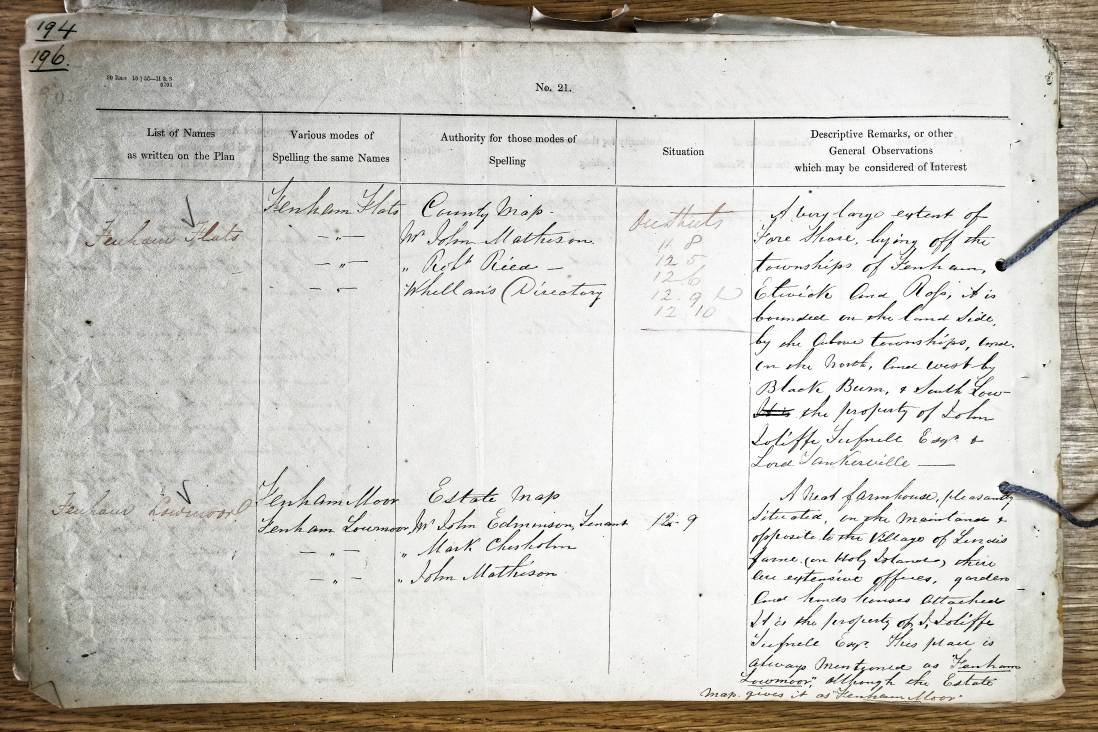 194
196.
No. 21.
List of Names
as written on the Plan
Various modes of
Spelling the same Names
Authority for those modes of
Spelling
Situation
Descriptive Remarks, or other
General Observations
which may be considered of Interest
Fenham Flats
Fenham Flats
— „ —
— „ —
— „ —
County Map -
Mr John Mathison
„ Robt Ried —
Whellan's Directory
11 8
12 5
12 6
12. 9
12 10
A very large extent of
Fore Shore, lying off the
townships of Fenham,
Elwick And Ross, it is
bounded on the land side,
by the above townships, and
on the North, and west by
Black Burn, & South Low-
the property of John
Joliffe Tufnell Esqr &
Lord Tankerville —
Fenham Lowmoor
Fenham Moor
Fenham Lowmoor
— „ —
— „ —
Estate Map
Mr John Edminson, Tenant
„ Mark Chisholm
„ John Mathison
12. 9
A Neat farmhouse, pleasantly
Situated, on the Mainland &
opposite to the Village of Lindis
farne (on Holy Island) there
are extensive offices, garden
And hinds houses attached
It is the property of J. Joliffe
Tufnell Esqr. This place is
always Mentioned as "Fenham
Lowmoor," although the Estate
Map. gives it as "Fenham Moor"